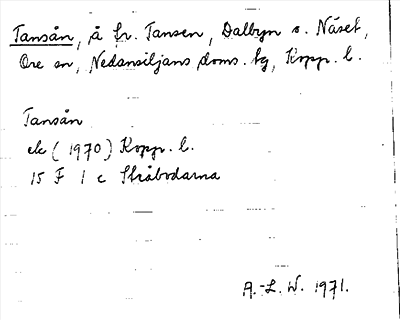 Tansån, å fr. Tansen, Dalbyn o. Näset,
Ore sn, Nedansiljans doms. tg, Kopp. l.
Tansån
ek (1970) Kopp. l.
15 F 1 c Stråbodarna
A.-L. W. 1971.